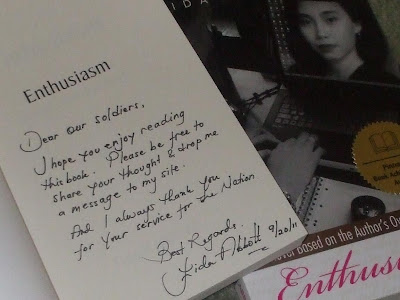 IDA
Enthusiasm
Dear our soldiers,
I hope you enjoy reading
this book. Please be free to
share your thought & drop me
a message to my site.
And I always thank you
for your service for the Nation
Best Regards.
Lida Abbott 9/20/11
ovel based on the Author's Ow
Enthusi